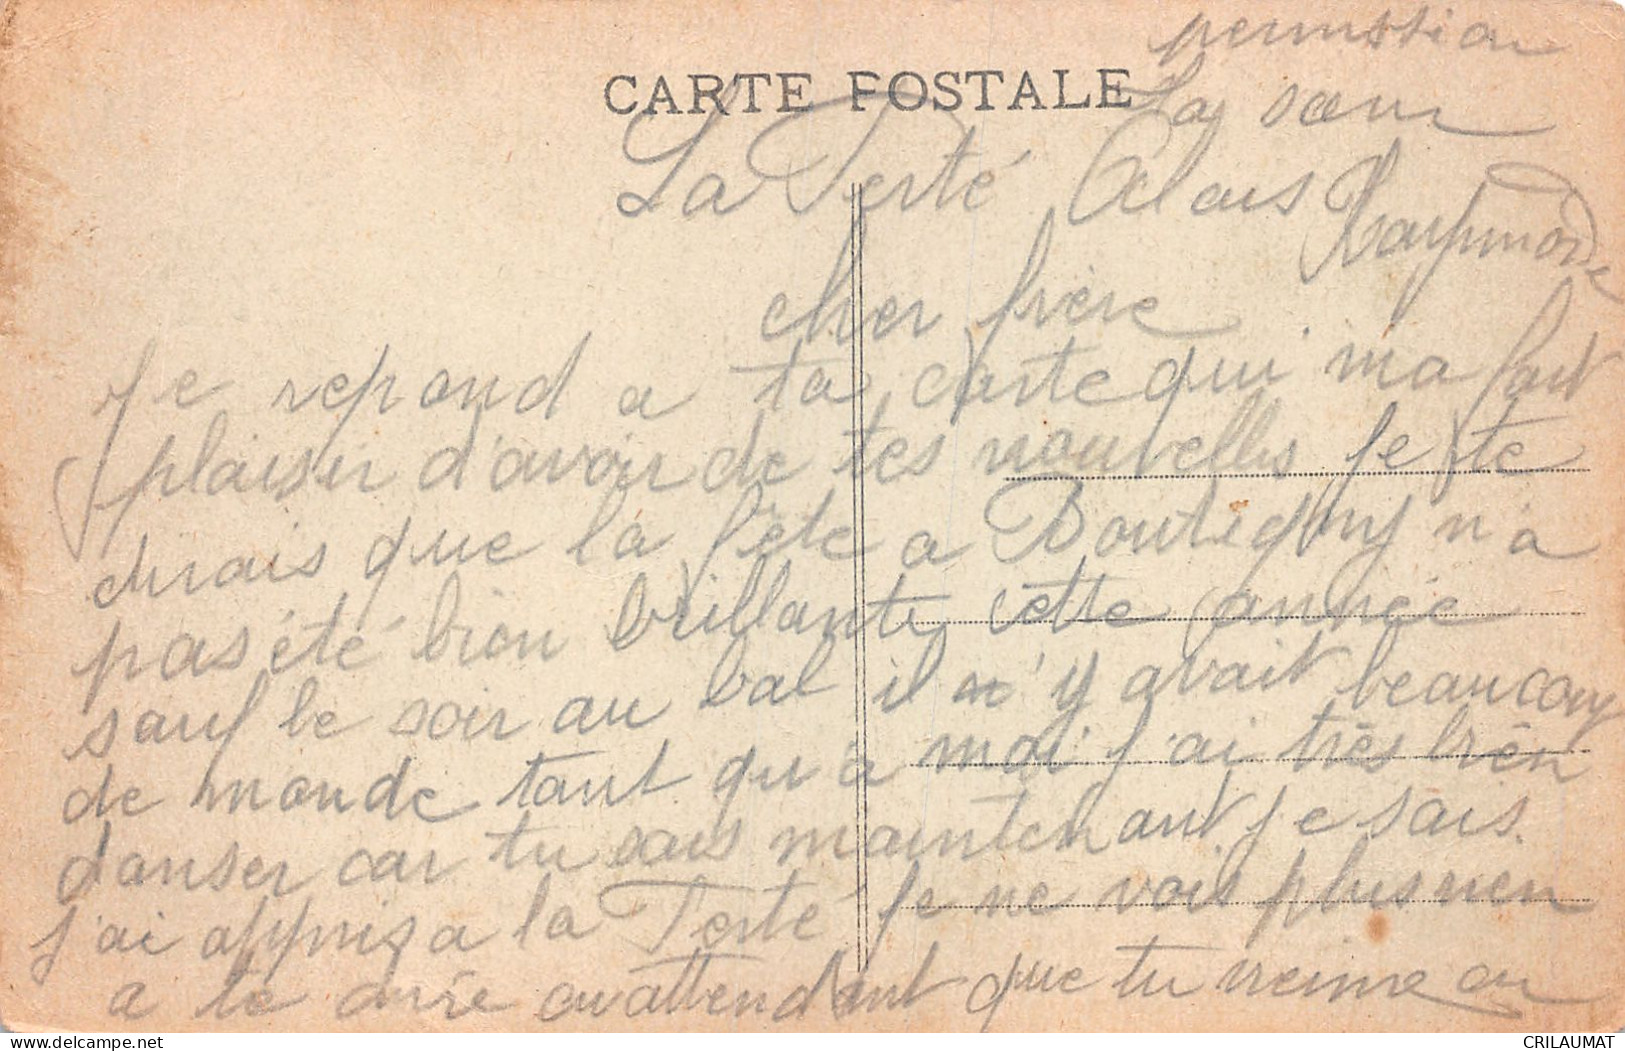 permission
CARTE POSTALE
La sœur
La Ferté Alais Raymonde
cher frère
Je repond a ta carte qui ma fait
plaisir d'avoir de tes nouvelles je te
dirais que la fête a Boutigny n'a
pas été bien brillante cette année
sauf le soir au bal il n'y avait beaucoup
de monde tant qu'à moi j'ai très bien
danser car tu sais maintenant je sais
j'ai appris a la Ferté je ne vois plus rien
a te dire en attendant que tu vienne en
CRILAUMAT